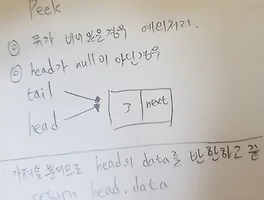 Peek
① 큐가 비어있을경우 예외처리.
② head가 null이 아닌경우
tail
head
3 next
가져올뿐이므로 head의 data를 반환하고 끝
return head.data